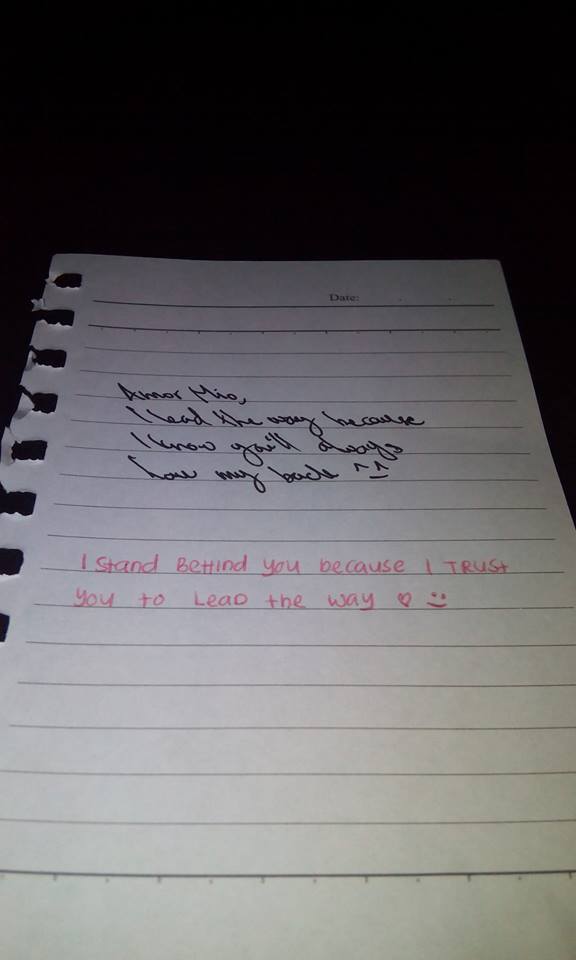 Date:
Amor Mio,
I lead the way because
I know you'll always
have my back ^_^
I stand BeHind you because I TRUST
you to LeaD the way ♡ :)